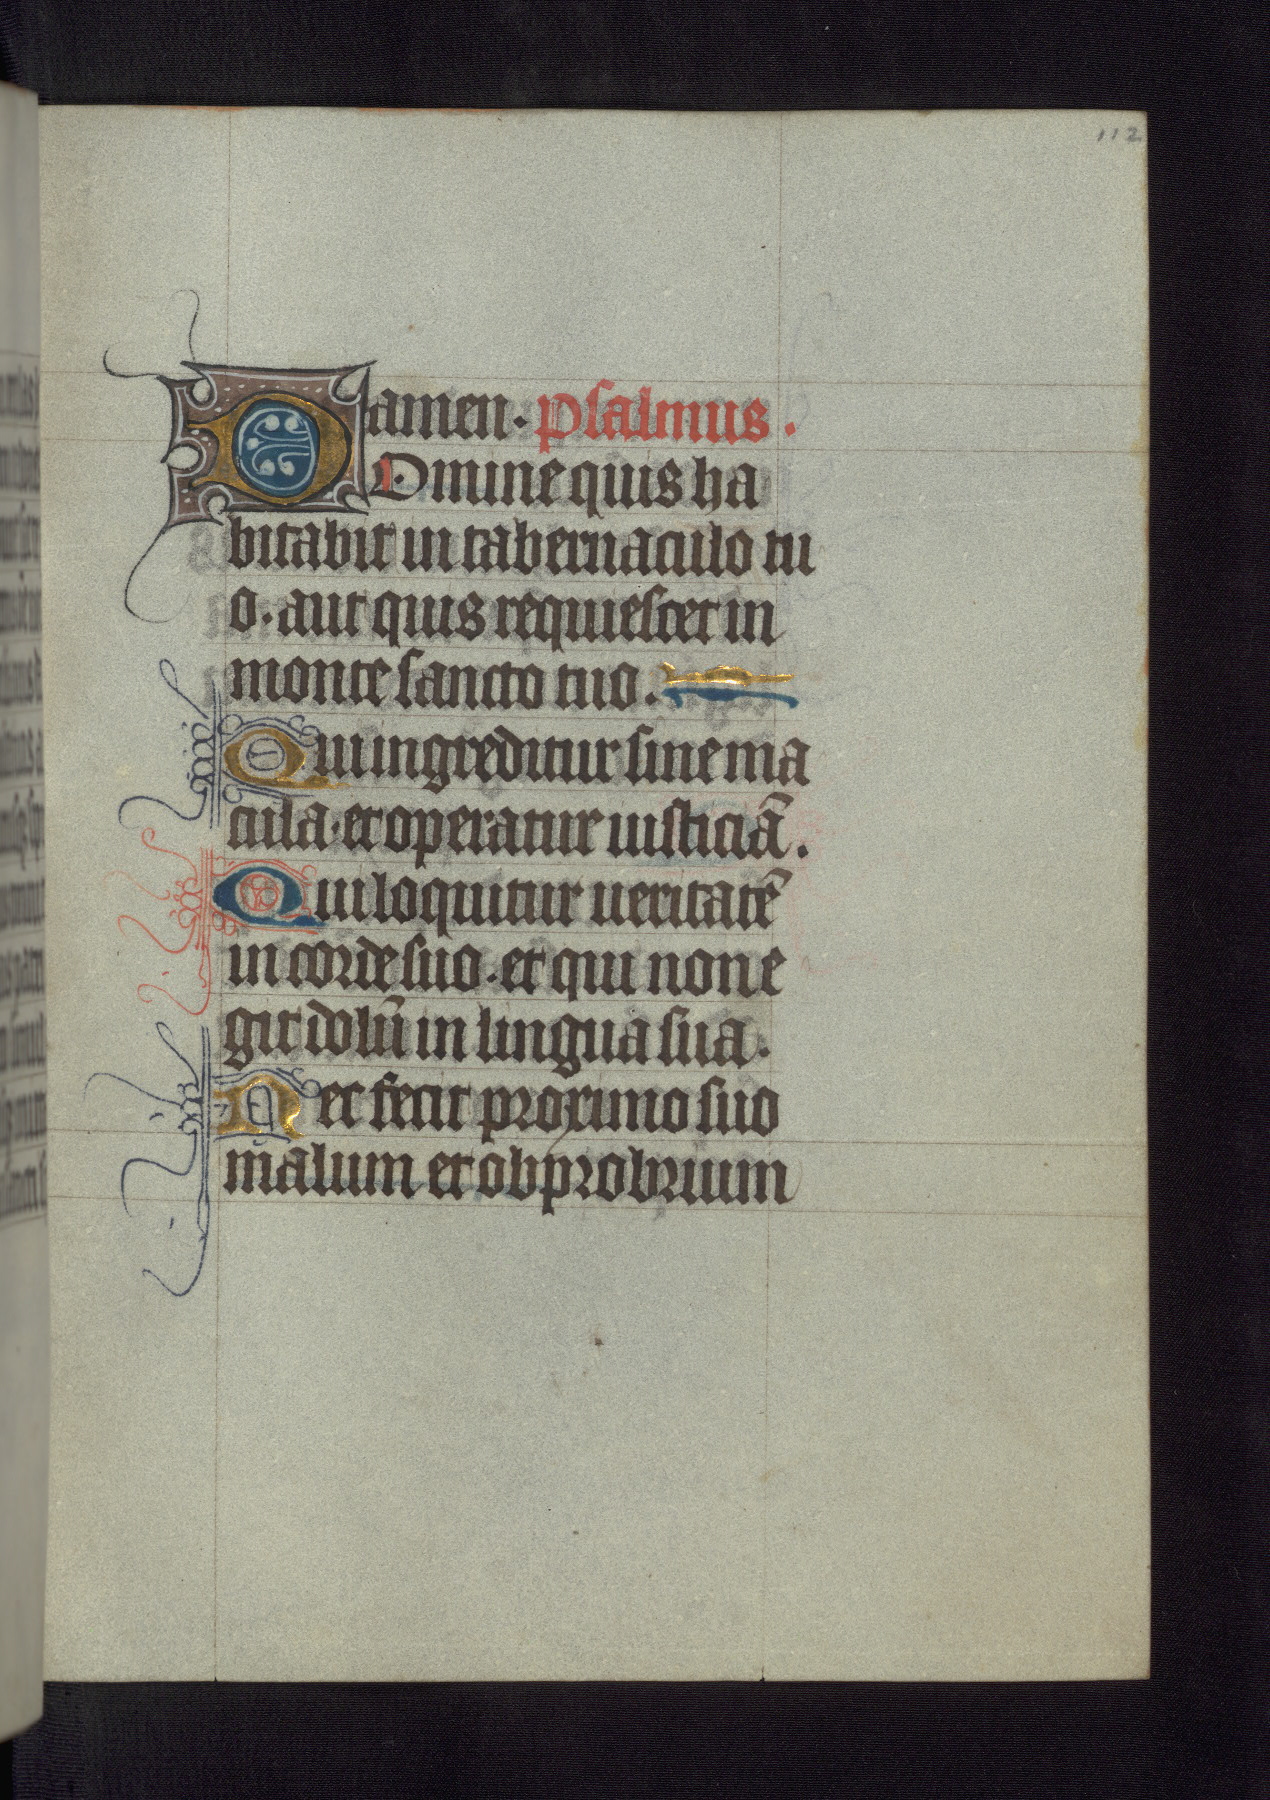 112
amen. psalmus.
Domine quis ha
bitabit in tabernaculo tu
o. aut quis requiescet in
monte sancto tuo.
Qui ingreditur sine ma
cula. et operatur iusticiā.
Qui loquitur ueritatē
in corde suo. et qui non e
git dolū in lingua sua.
Nec fecit proximo suo
malum et obprobrium